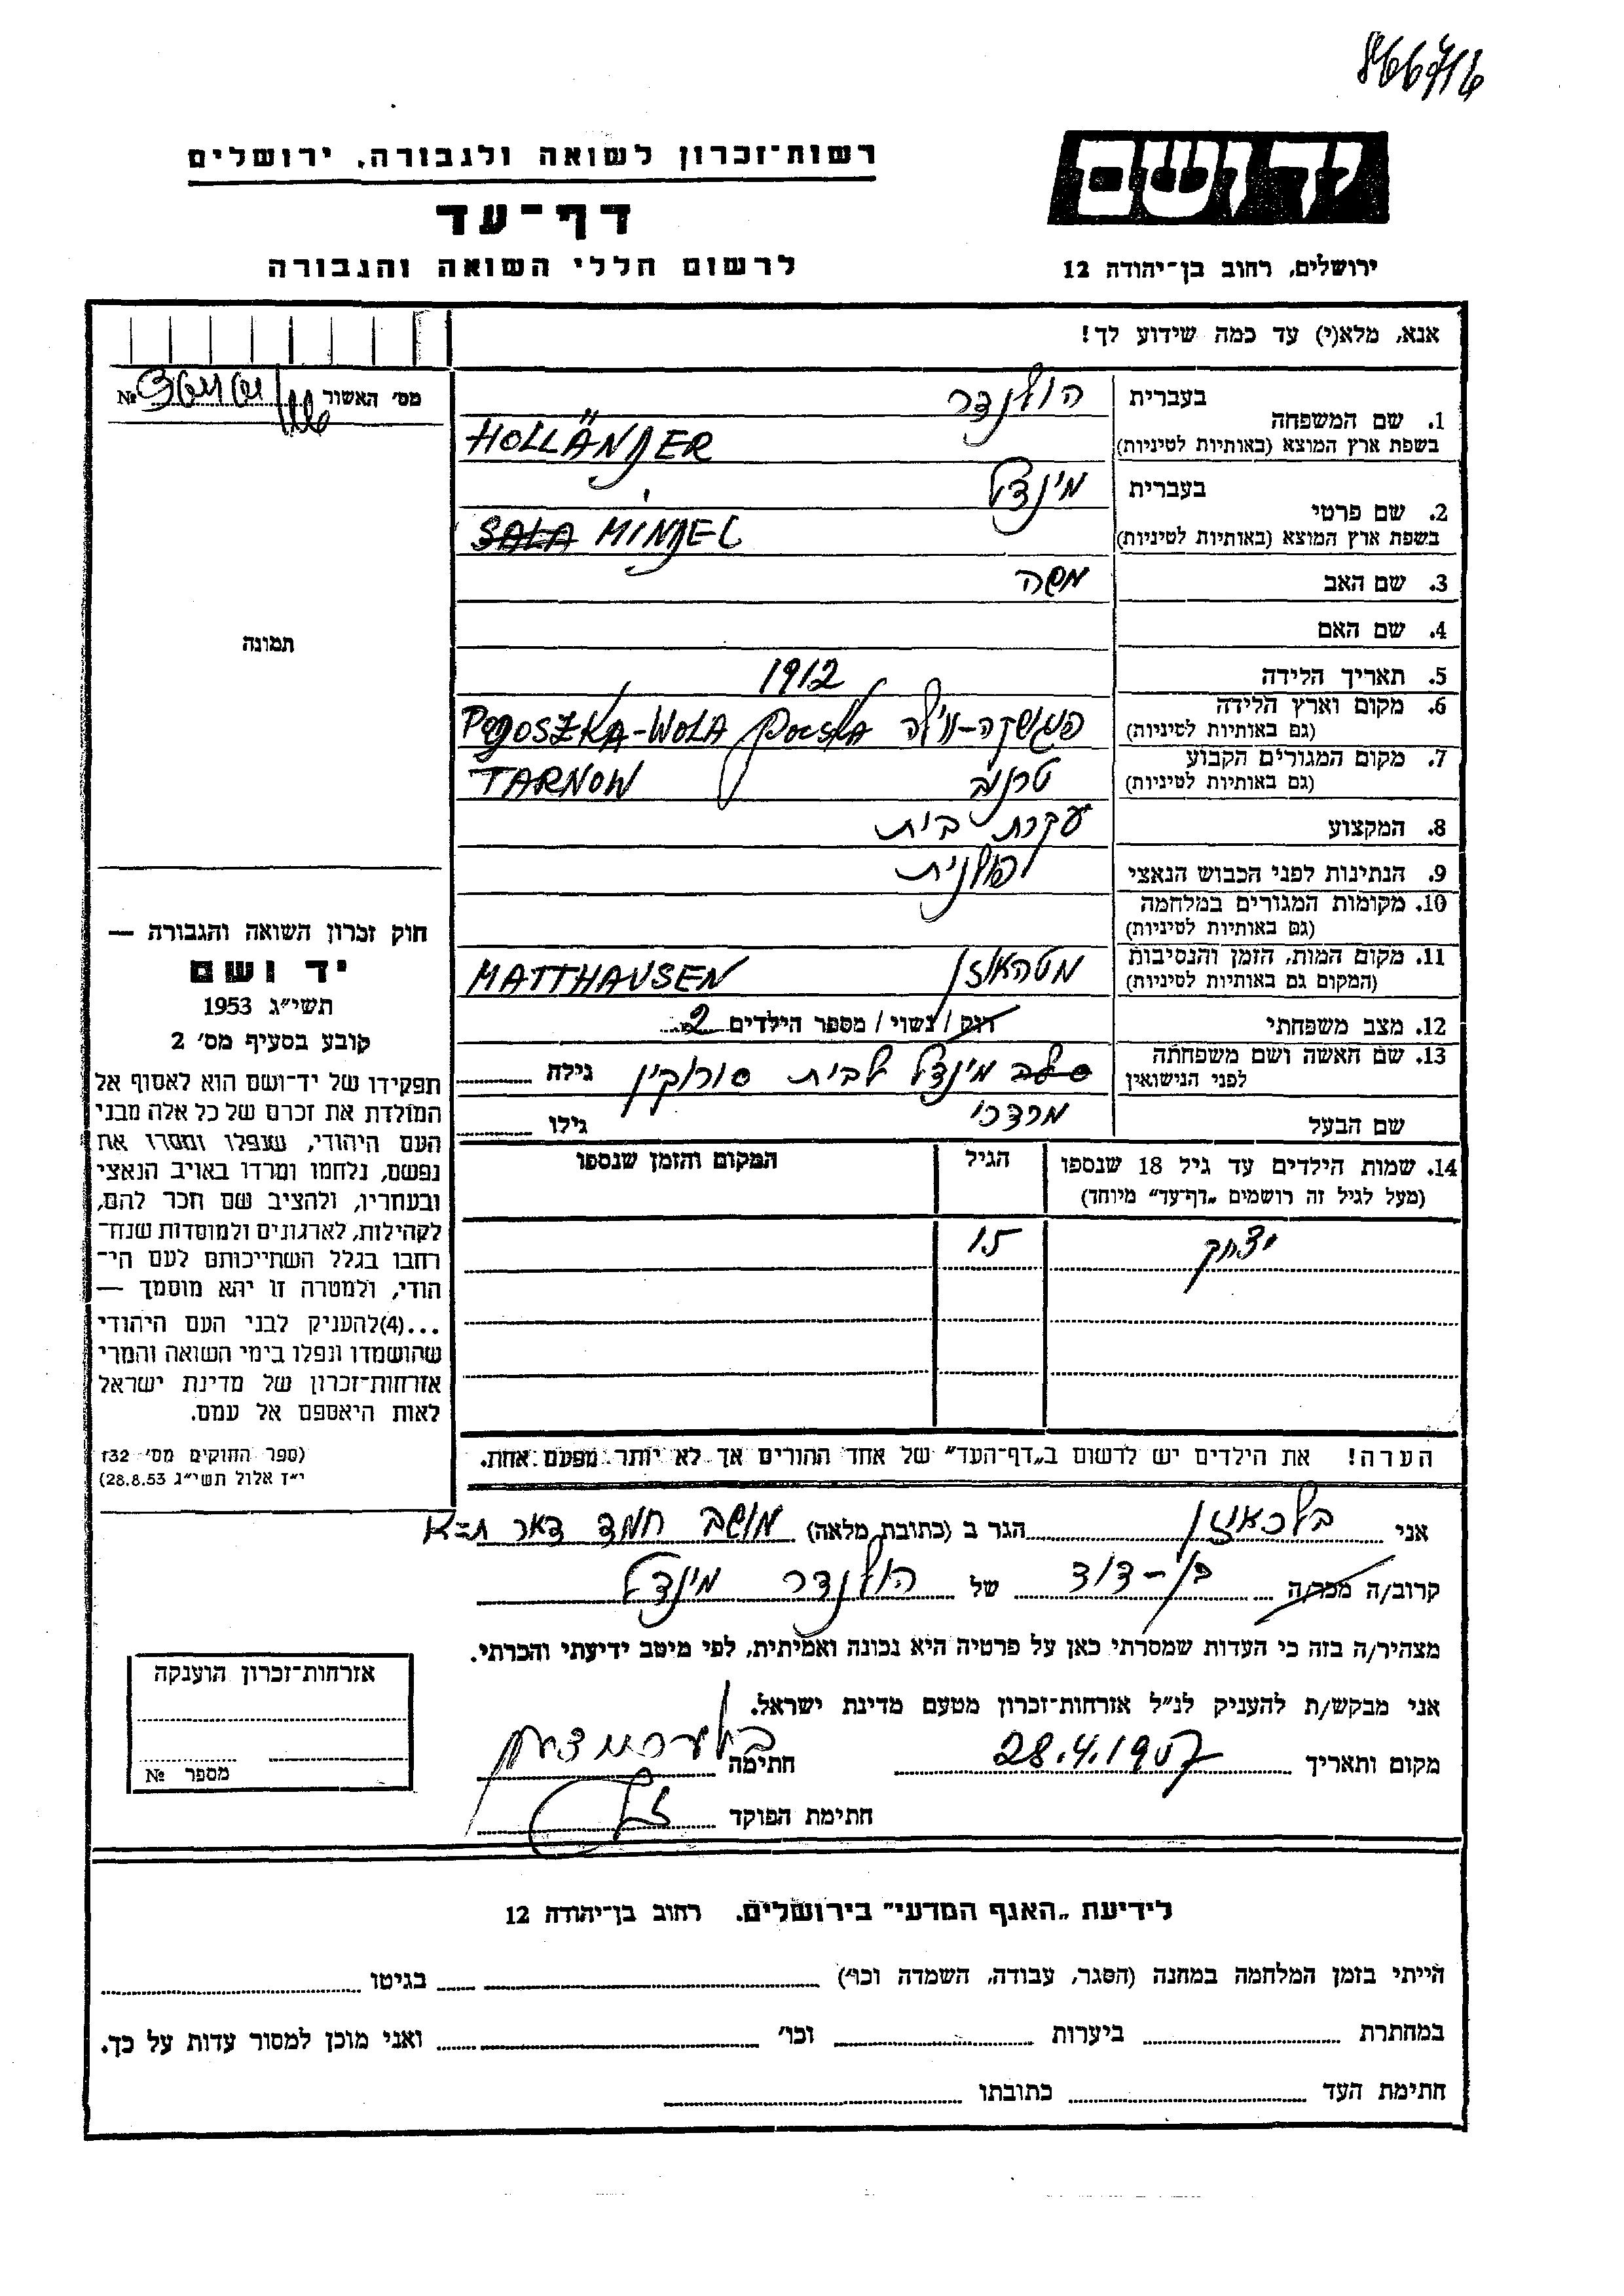 866716
רשות־זכרון לשואה ולגבורה, ירושלים
דף־עד
לרשום חללי השואה והגבורה
יד ושם
ירושלים, רחוב בן־יהודה 12
אנא, מלא(י) עד כמה שידוע לך!
מס׳ האשור №
1. שם המשפחה בעברית הולנדר
בשפת ארץ המוצא (באותיות לטיניות) HOLLÄNDER
2. שם פרטי בעברית מינדל
בשפת ארץ המוצא (באותיות לטיניות) SALA MINDEL
3. שם האב משה
4. שם האם
תמונה
5. תאריך הלידה 1912
6. מקום וארץ הלידה
(גם באותיות לטיניות) WOLA POLSKA
7. מקום המגורים הקבוע
(גם באותיות לטיניות) טרנוב TARNOW
8. המקצוע עקרת בית
9. הנתינות לפני הכבוש הנאצי פולנית
10. מקומות המגורים במלחמה
(גם באותיות לטיניות)
11. מקום המות, הזמן והנסיבות
(המקום גם באותיות לטיניות) מטהאוזן MATTHAUSEN
12. מצב משפחתי רווק / נשוי / מספר הילדים 2
13. שם האשה ושם משפחתה
לפני הנישואין סלה מינדל לבית סורוקין גילה
שם הבעל מרדכי גילו
14. שמות הילדים עד גיל 18 שנספו
(מעל לגיל זה רושמים „דף־עד״ מיוחד)
הגיל
המקום והזמן שנספו
יצחק 15
הערה! את הילדים יש לרשום ב„דף־העד״ של אחד ההורים אך לא יותר מפעם אחת.
חוק זכרון השואה והגבורה —
יד ושם
תשי״ג 1953
קובע בסעיף מס׳ 2
תפקידו של יד־ושם הוא לאסוף אל
המולדת את זכרם של כל אלה מבני
העם היהודי, שנפלו ומסרו את
נפשם, נלחמו ומרדו באויב הנאצי
ובעחריו, ולהציב שם חכר להם,
לקהילות, לארגונים ולמוסדות שנח־
רחבו בגלל השתייכותם לעם הי־
הודי, ולמטרה זו יהא מוסמך —
...(4)להעניק לבני העם היהודי
שהושמדו ונפלו בימי השואה והמרי
אזרחות־זכרון של מדינת ישראל
לאות היאספם אל עמם.
(ספר החוקים מס׳ 132
י״ז אלול תשי״ג 28.8.53)
אני הגר ב (כתובת מלאה) מושב חמד דאר
קרוב/ה מכר/ה בן־דוד של הולנדר מינדל
מצהיר/ה בזה כי העדות שמסרתי כאן על פרטיה היא נכונה ואמיתית, לפי מיטב ידיעתי והכרתי.
אני מבקש/ת להעניק לנ״ל אזרחות־זכרון מטעם מדינת ישראל.
מקום ותאריך 28.4.1957 חתימה
חתימת הפוקד
אזרחות־זכרון הוענקה
מספר №
לידיעת „האגף המדעי״ בירושלים, רחוב בן־יהודה 12
הייתי בזמן המלחמה במחנה (הסגר, עבודה, השמדה וכו׳) בגיטו
במחתרת ביערות וכו׳ ואני מוכן למסור עדות על כך.
חתימת העד כתובתו